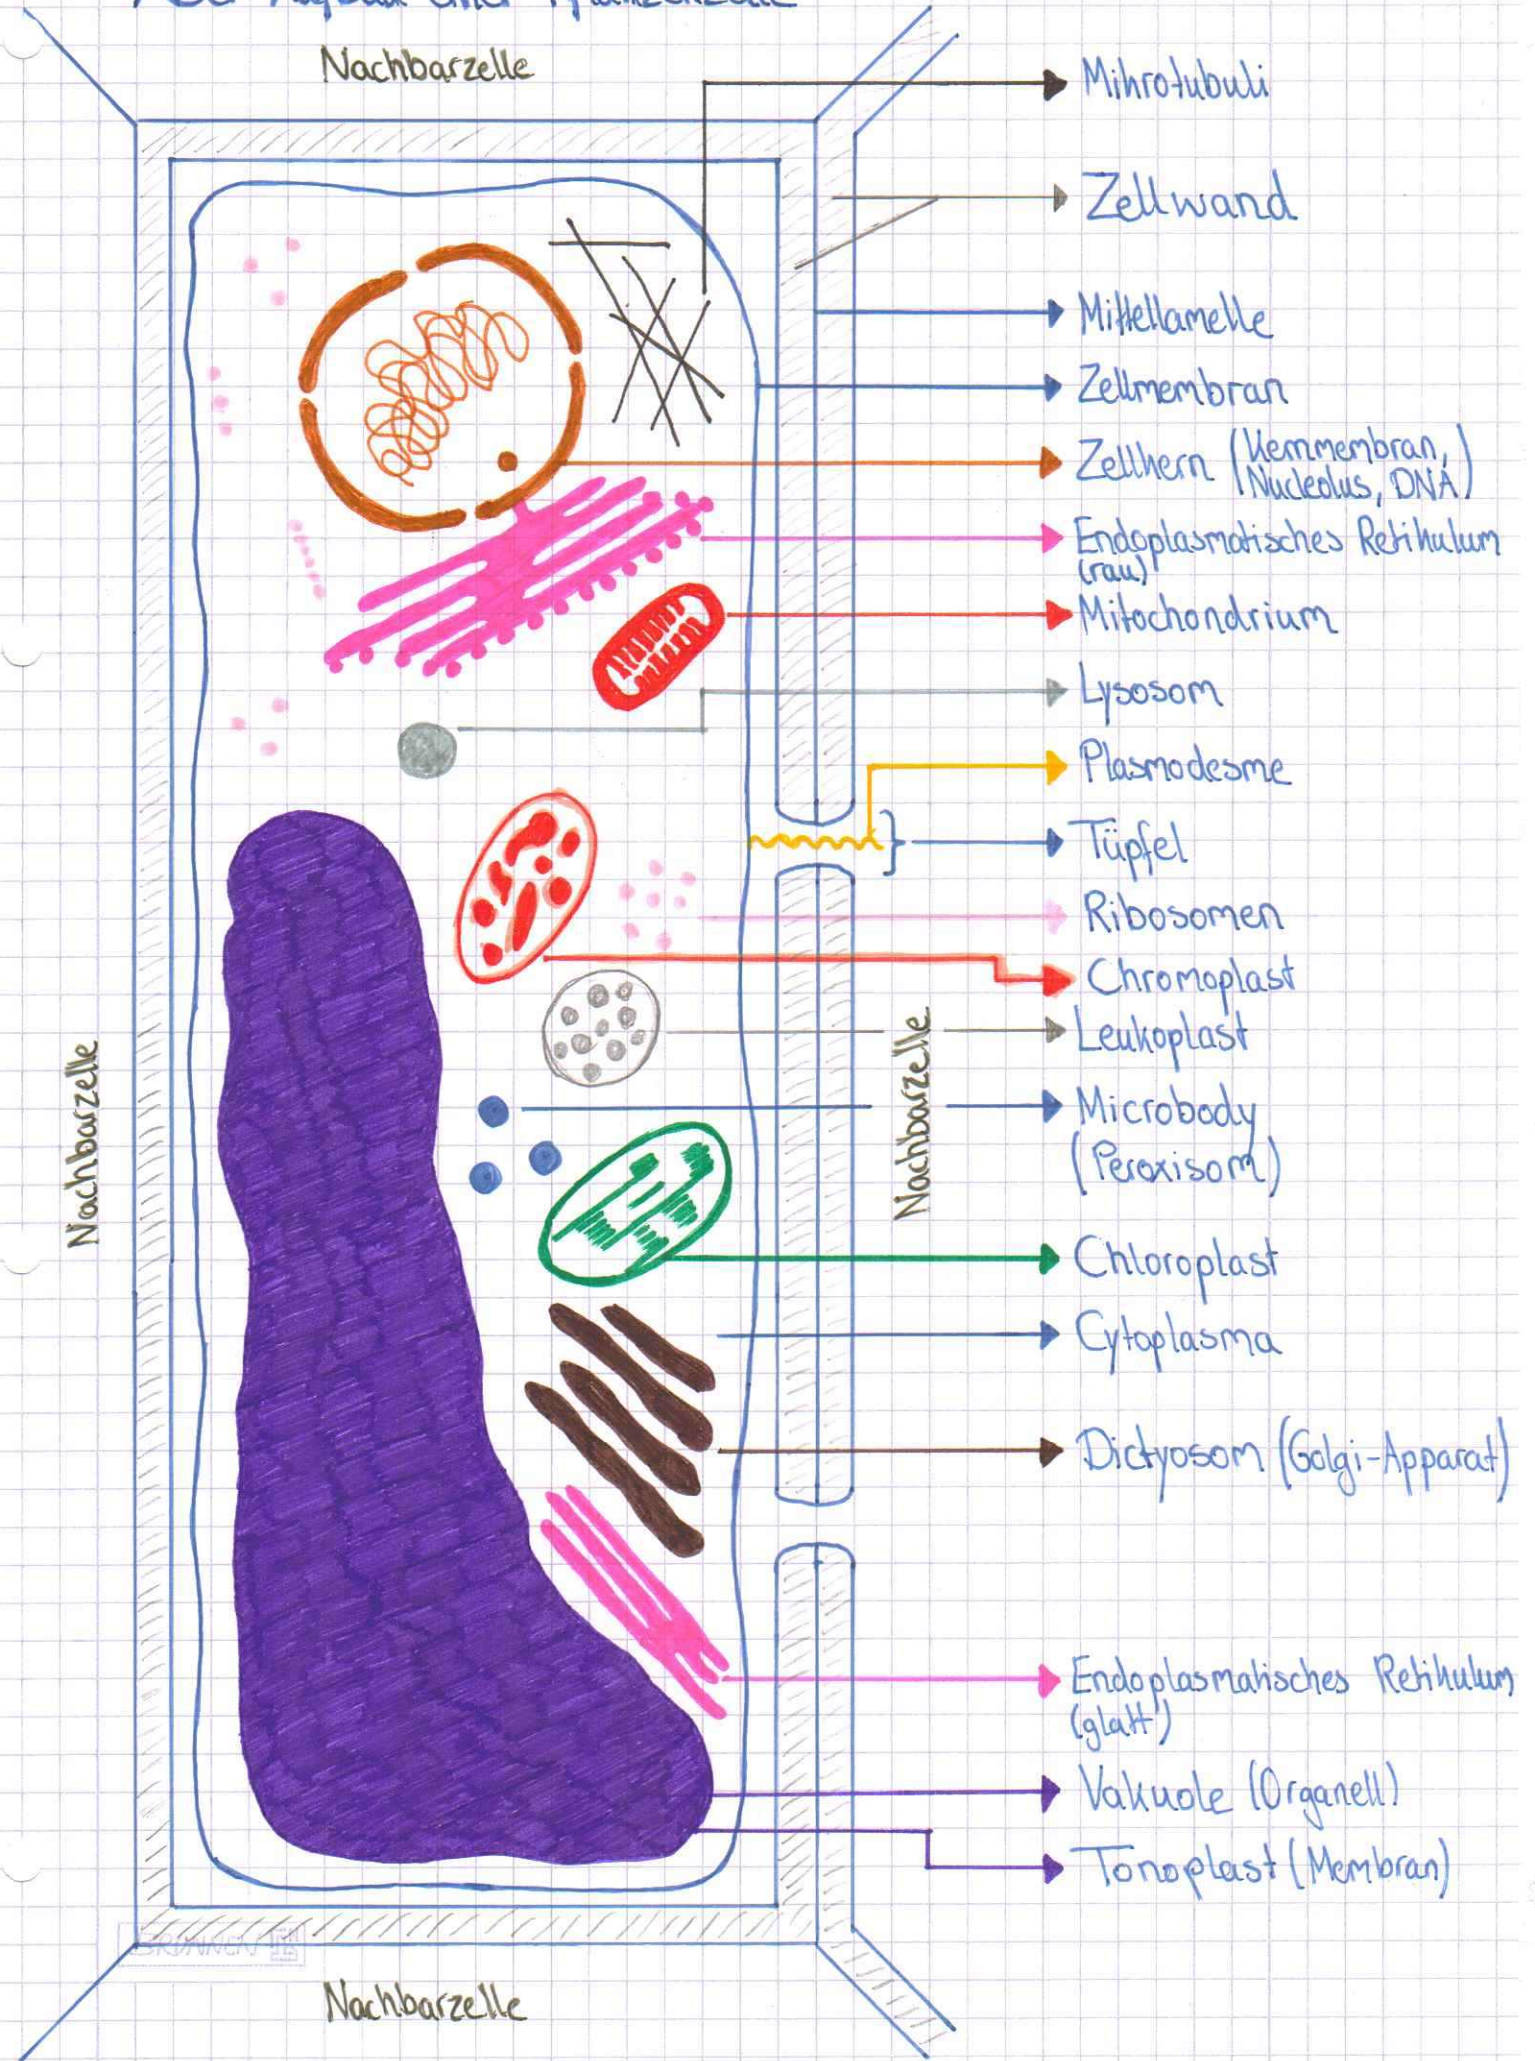 Der Aufbau einer Pflanzenzelle
Nachbarzelle
Mikrotubuli
Zellwand
Mittellamelle
Zellmembran
Zellkern (Kernmembran,
Nucleolus, DNA)
Endoplasmatisches Retikulum
(rau)
Mitochondrium
Lysosom
Plasmodesme
Tüpfel
Ribosomen
Chromoplast
Leukoplast
Nachbarzelle
Nachbarzelle
Microbody
(Peroxisom)
Chloroplast
Cytoplasma
Dictyosom (Golgi-Apparat)
Endoplasmatisches Retikulum
(glatt)
Vakuole (Organell)
Tonoplast (Membran)
BRUNNEN
Nachbarzelle